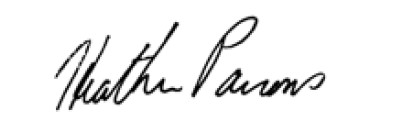 Heather Parsons